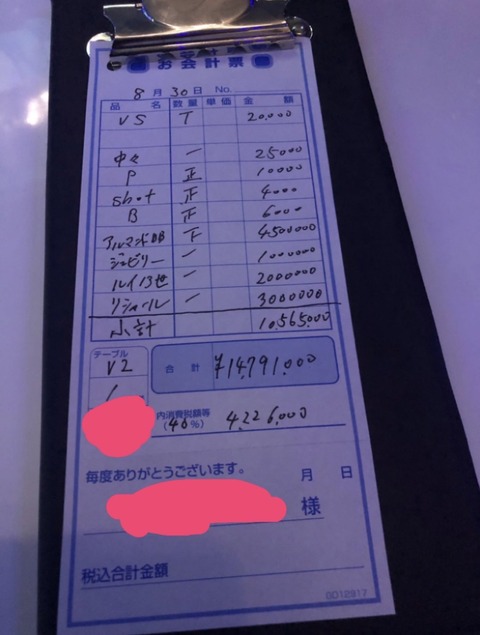 お会計票
8月30日 No.
品名 数量 単価 金額
VS T 20.000
中々 一 25000
P 正 10000
shot 正 4000
B 正 6000
アルマンドBB 下 4500000
ジュビリー 一 1000000
ルイ13世 一 2000000
リシャール 一 3000000
小計 10,565,000
テーブル
V2
合計 ¥14,791,000
内消費税額等
(40%) 4,226,000
毎度ありがとうございます。 月 日
様
税込合計金額
GD12917